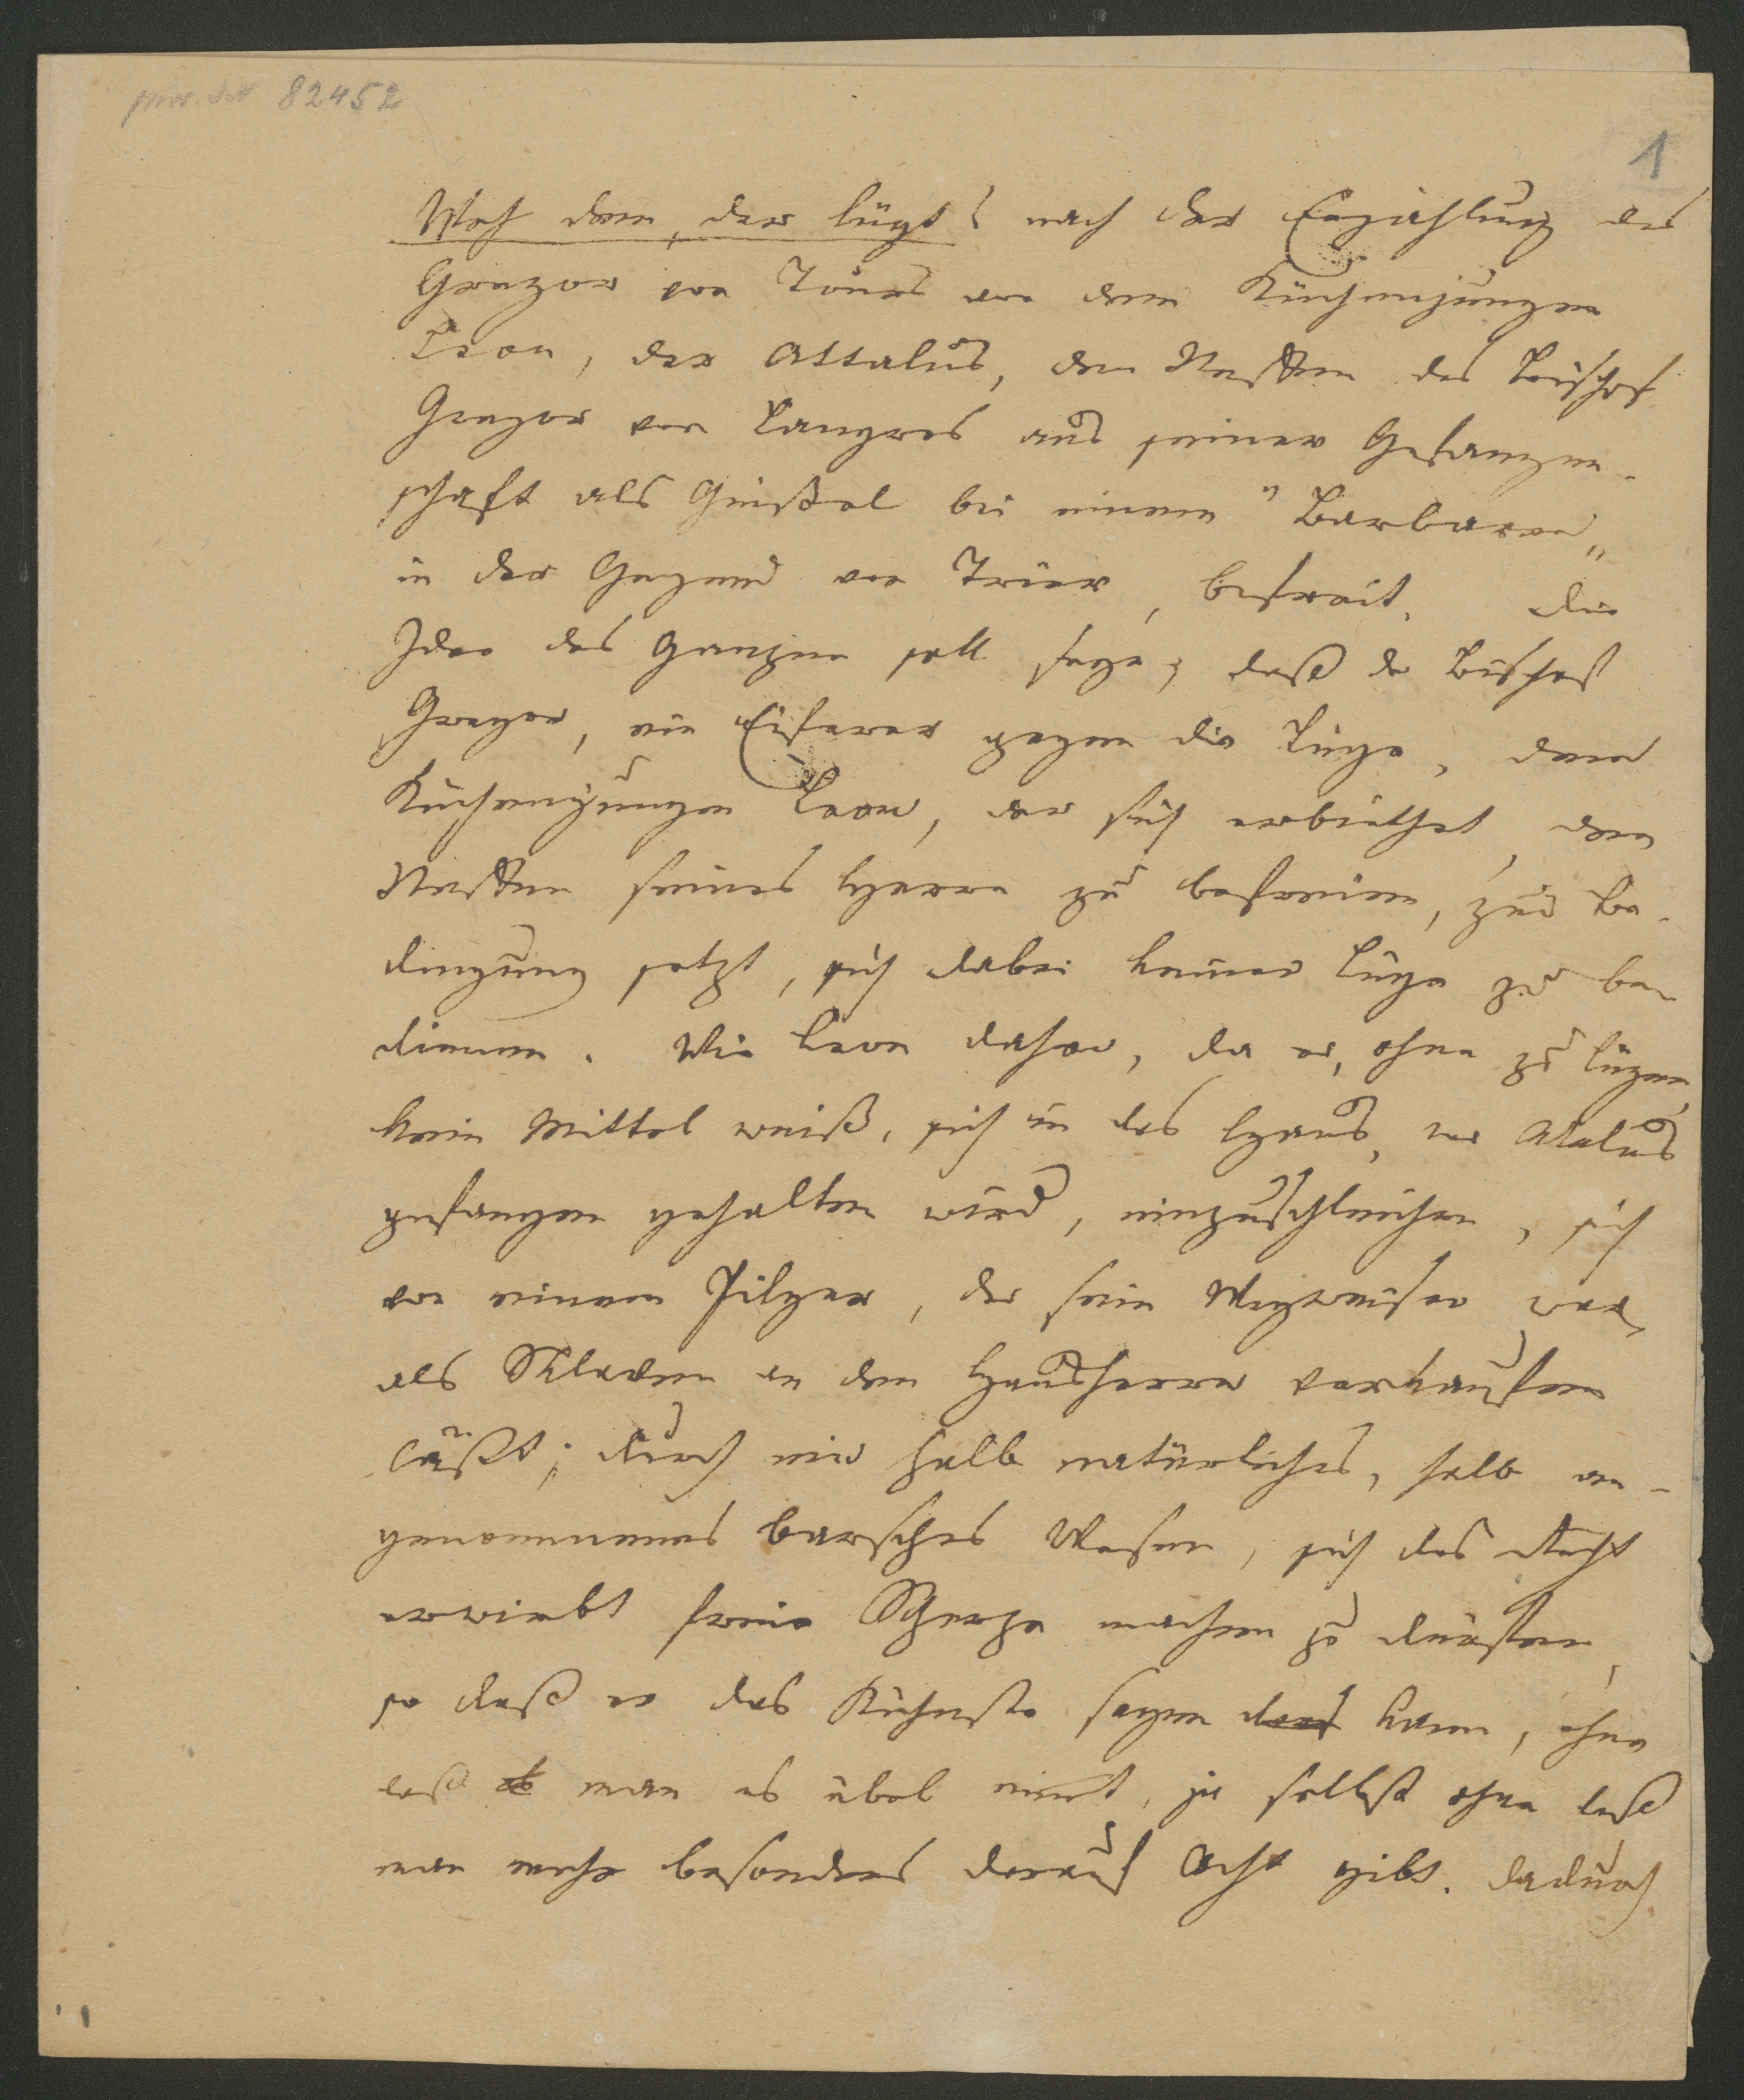 82452
1
Weh dem, der lügt! nach der Erzählung des
Gregor von Tours von dem Küchenjungen
Leon, der Attalus, den Neffen des Bischof
Gregor von Langres aus seiner Gefangen-
schaft als Geißel bei einem "Barbaren„
in der Gegend von Trier, befreit. Die
Idee des Ganzen soll seyn, daß der Bischof
Gregor, ein Eiferer gegen die Lüge, dem
Küchenjungen Leon, der sich erbiethet, den
Neffen seines Herrn zu befreien, zur Be-
dingung setzt, sich dabei keiner Lüge zu be-
dienen. Wie Leon daher, da er, ohne zu lügen
kein Mittel weiß, sich in das Haus, wo Atalus
gefangen gehalten wird, einzuschleichen, sich
von einem Pilger, der sein Wegweiser war,
als Sklaven an den Hausherrn verkaufen
läßt; durch ein halb natürliches, halb an-
genommenes barsches Wesen, sich das Recht
erwirbt freie Scherze machen zu dürfen,
so daß er das Kühnste sagen darf kann, ohne
daß man es übel nimt, ja selbst ohne daß
man mehr besonders darauf Acht gibt. Dadurch